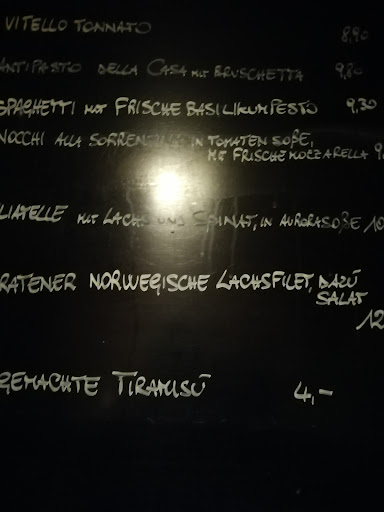 VITELLO TONNATO 8,90
ANTIPASTO DELLA CASA MIT BRUSCHETTA 9,80
SPAGHETTI MIT FRISCHE BASILIKUMPESTO 9,30
NOCCHI ALLA SORRENTINA IN TOMATEN SOßE,
MIT FRISCHE MOZZARELLA 9,
LIATELLE MIT LACHS UND SPINAT, IN AURORASOßE 10
RATENER NORWEGISCHE LACHSFILET, DAZU
SALAT
12
GEMACHTE TIRAMISÙ 4,-